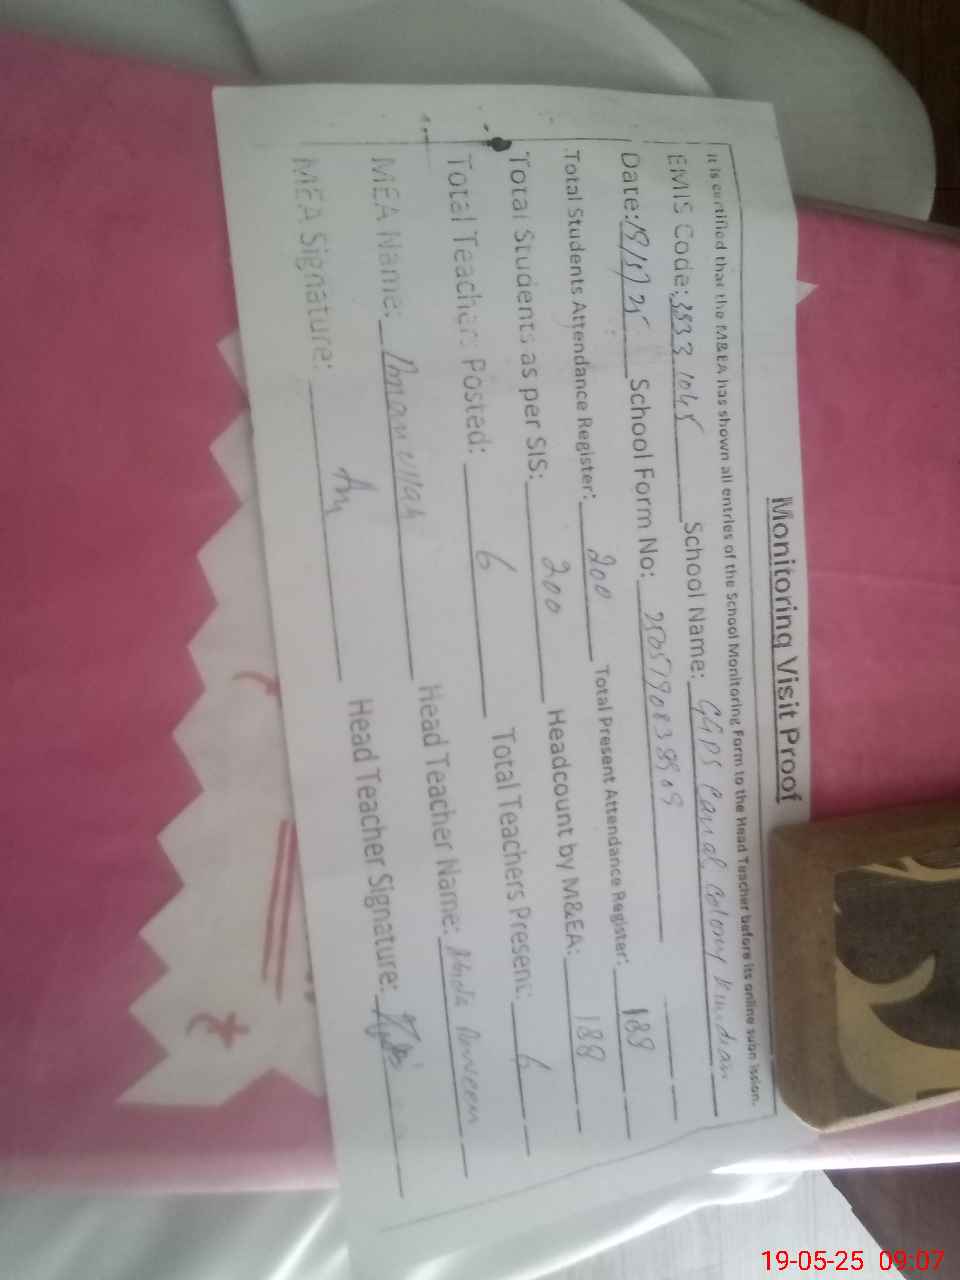 Monitoring Visit Proof
It is certified that the M&EA has shown all entries of the School Monitoring Form to the Head Teacher before its online submission.
EMIS Code: 35331045 School Name: GGPS Canal Colony Kundian
Date: 19/5/25 School Form No:
Total Students Attendance Register: 200 Total Present Attendance Register: 188
Total Students as per SIS: 200 Headcount by M&EA: 188
Total Teachers Posted: 6 Total Teachers Present: 6
MEA Name: Aman ullah Head Teacher Name: Parveen
MEA Signature: Head Teacher Signature:
19-05-25 09:07